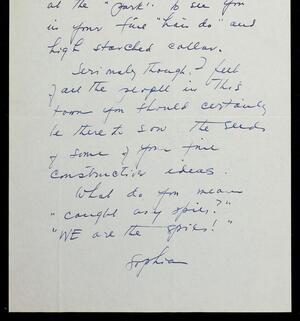 at the "park". To see you
in your fine "hair do" and
high starched collar.
Seriously though, I feel
of all the people in this
town you should certainly
be there to sow the seeds
of some of your fine
construction ideas.
What do you mean
"caught any spies?"
"WE are the spies!"
Sophia